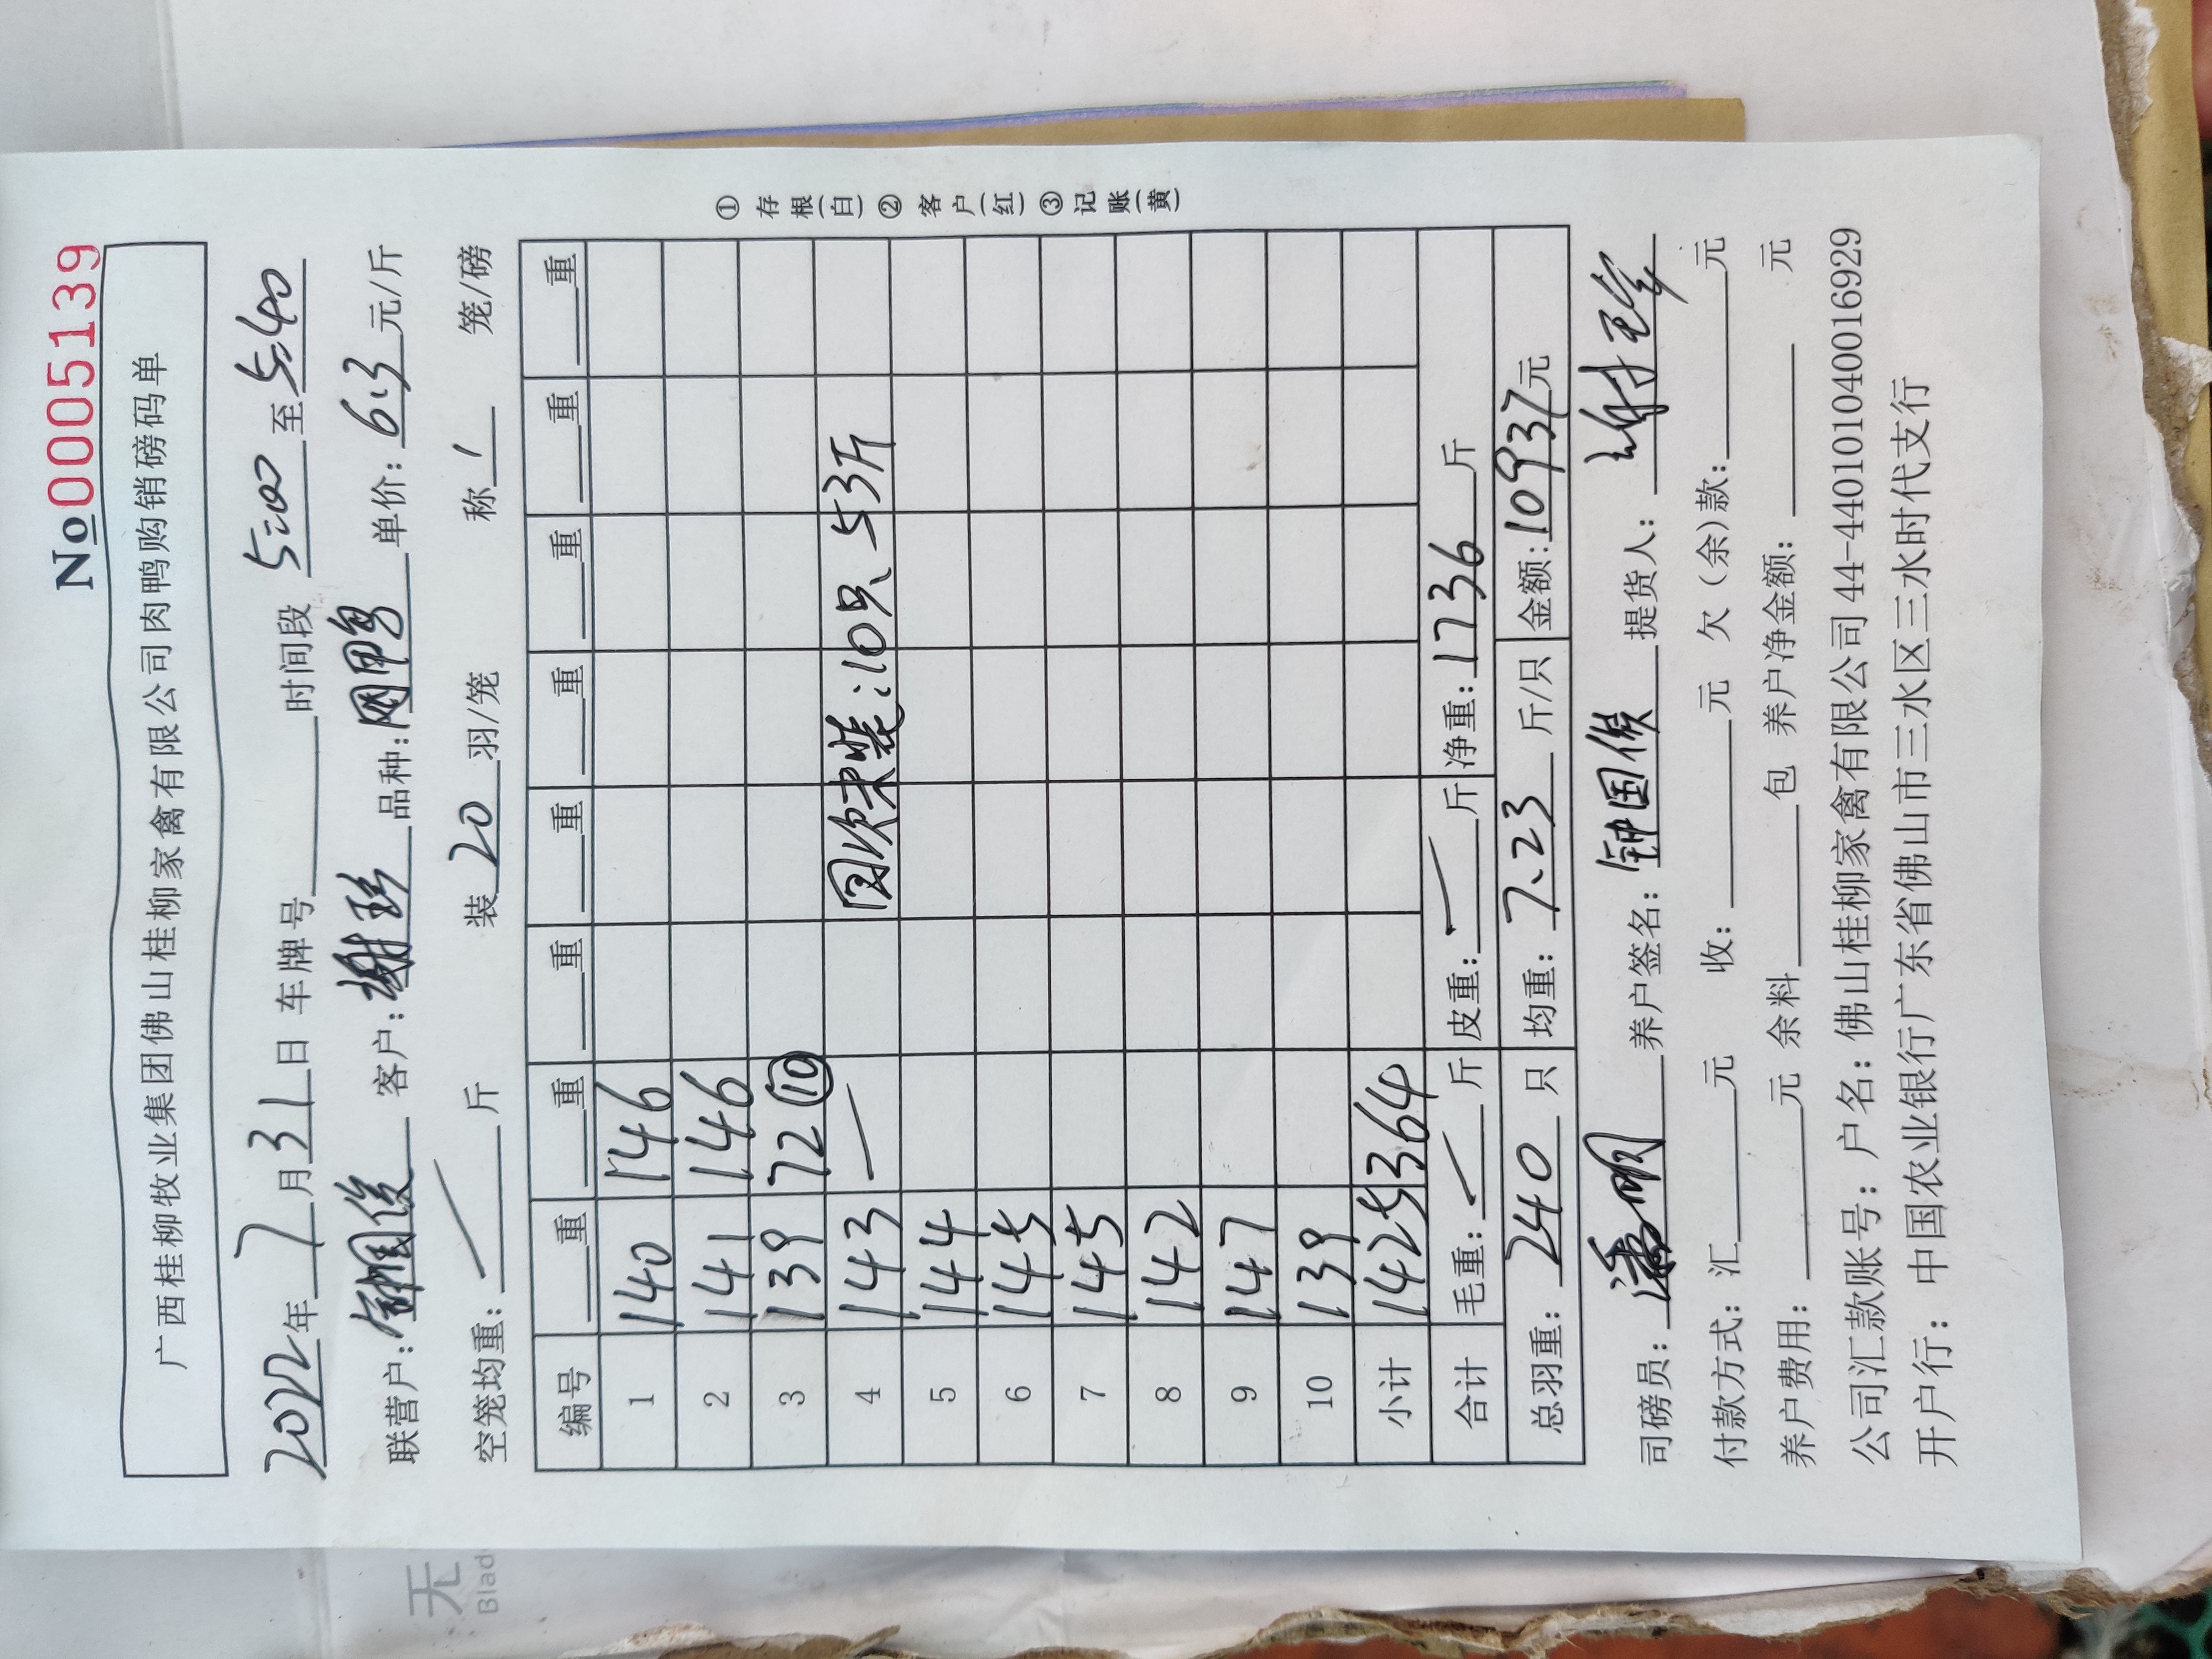 No 0005139
广西桂柳牧业集团佛山桂柳家禽有限公司肉鸭购销磅码单
2022年7月31日 车牌号 时间段 5:00 至 5:40
联营户: 钟国俊 客户: 谢珍 品种: 网鸭 单价: 6.3 元/斤
空笼均重: 斤 装 20 羽/笼 称 1 笼/磅
编号 重 重 重 重 重 重 重 重
1 140 146
2 141 146
3 139 72 ⑩
4 143 — 因伤未装:10只 53斤
5 144
6 145
7 145
8 142
9 147
10 139
小计 1425 364
合计 毛重: 斤 皮重: 斤 净重: 1736 斤
总羽重: 240 只 均重: 7.23 斤/只 金额: 10937元
① 存根(白) ② 客户(红) ③ 记账(黄)
司磅员: 养户签名: 钟国俊 提货人:
付款方式: 汇 元 收: 元 欠(余)款: 元
养户费用: 元 余料 包 养户净金额: 元
公司汇款账号: 户名: 佛山桂柳家禽有限公司 44-440101040016929
开户行: 中国农业银行广东省佛山市三水区三水时代支行
无
Blad